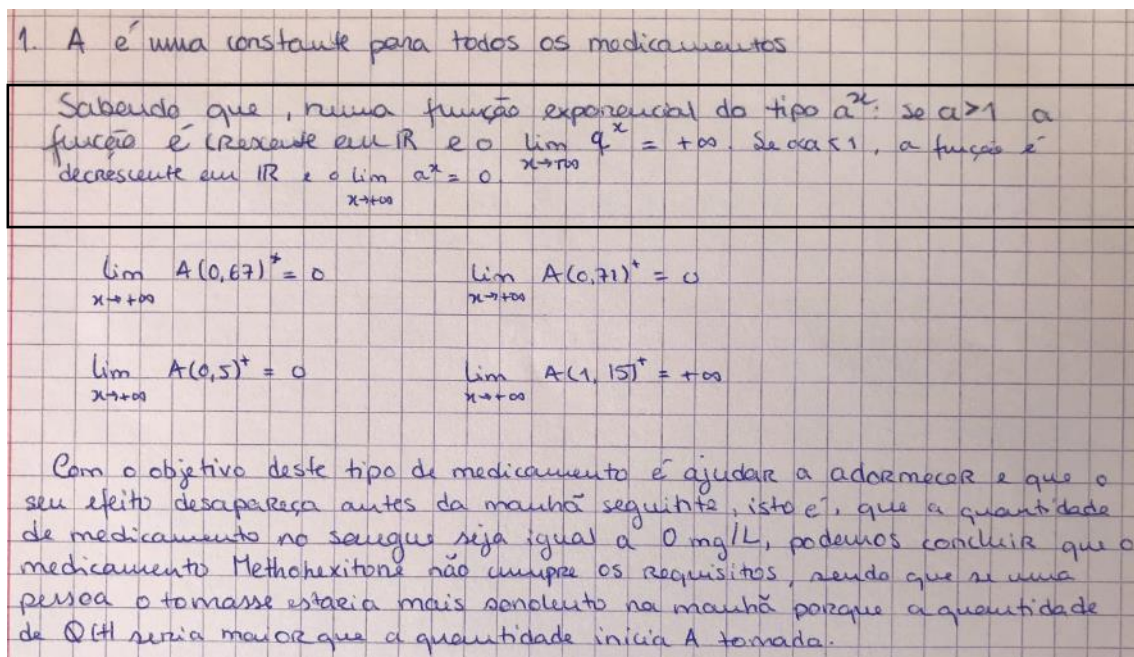 1. A é uma constante para todos os medicamentos
Sabendo que, numa função exponencial do tipo a^x: se a>1 a
função é crescente em ℝ e o lim a^x = +∞. Se 0<a<1, a função é
x→+∞
decrescente em ℝ e o lim a^x = 0
x→+∞
lim A(0,67)^+ = 0 lim A(0,71)^+ = 0
x→+∞ x→+∞
lim A(0,5)^+ = 0 lim A(1,15)^+ = +∞
x→+∞ x→+∞
Com o objetivo deste tipo de medicamento é ajudar a adormecer e que o
seu efeito desapareça antes da manhã seguinte, isto é, que a quantidade
de medicamento no sangue seja igual a 0 mg/L, podemos concluir que o
medicamento Methohexitone não cumpre os requisitos, sendo que se uma
pessoa o tomasse estaria mais sonolento na manhã porque a quantidade
de Q(t) seria maior que a quantidade inicia A tomada.